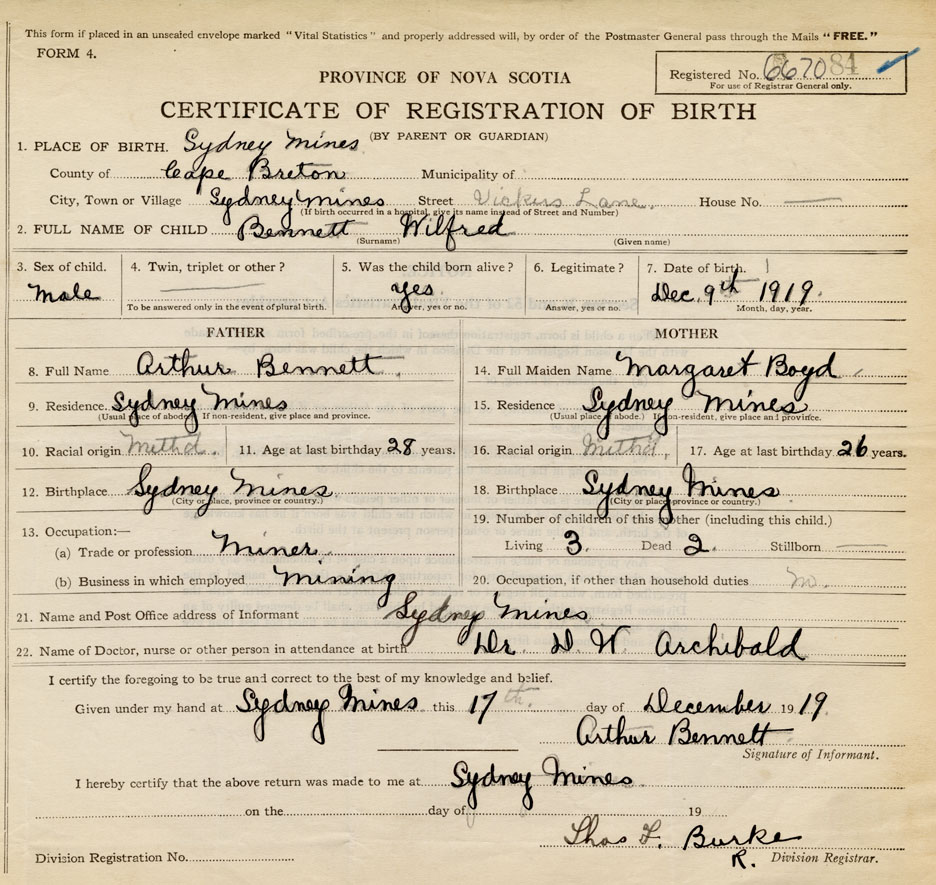 This form if placed in an unsealed envelope marked "Vital Statistics" and properly addressed will, by order of the Postmaster General pass through the Mails "FREE."
FORM 4.
PROVINCE OF NOVA SCOTIA
Registered No. 667084
For use of Registrar General only.
CERTIFICATE OF REGISTRATION OF BIRTH
(BY PARENT OR GUARDIAN)
1. PLACE OF BIRTH. Sydney Mines
County of Cape Breton Municipality of
City, Town or Village Sydney Mines Street Vickers Lane. House No. —
(If birth occurred in a hospital, give its name instead of Street and Number)
2. FULL NAME OF CHILD Bennett Wilfred
(Surname) (Given name)
3. Sex of child. 4. Twin, triplet or other? 5. Was the child born alive? 6. Legitimate? 7. Date of birth.
Male — yes. Dec. 9th 1919.
To be answered only in the event of plural birth. Answer, yes or no. Answer, yes or no. Month, day, year.
FATHER MOTHER
8. Full Name Arthur Bennett. 14. Full Maiden Name Margaret Boyd
9. Residence. Sydney Mines 15. Residence Sydney Mines
(Usual place of abode) If non-resident, give place and province. (Usual place of abode.) If non-resident, give place and province.
10. Racial origin Methd. 11. Age at last birthday 28 years. 16. Racial origin Methd. 17. Age at last birthday 26 years.
12. Birthplace Sydney Mines. 18. Birthplace Sydney Mines
(City or place, province or country.) (City or place province or country.)
13. Occupation:— 19. Number of children of this mother (including this child.)
(a) Trade or profession Miner. Living 3. Dead 2. Stillborn —
(b) Business in which employed Mining 20. Occupation, if other than household duties no.
21. Name and Post Office address of Informant Sydney Mines
22. Name of Doctor, nurse or other person in attendance at birth Dr. D. W. Archibald
I certify the foregoing to be true and correct to the best of my knowledge and belief.
Given under my hand at Sydney Mines this 17th. day of December 1919.
Arthur Bennett
Signature of Informant.
I hereby certify that the above return was made to me at Sydney Mines
on the day of 19
Thos L. Burke
Division Registration No. R. Division Registrar.